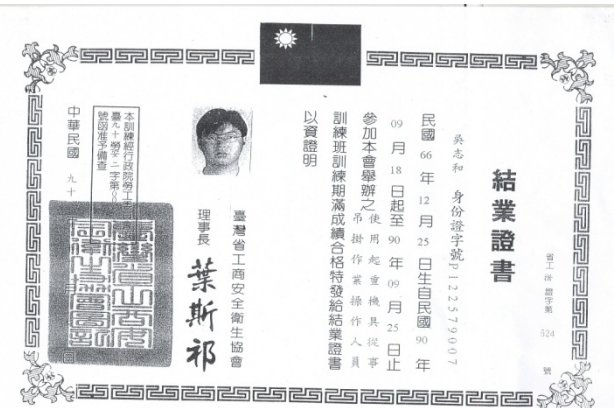 結業證書
省工 證字第 524 號
吳志和 身份證字號P122579007
民國 66 年 12 月 25 日生自民國 90 年
09 月 18 日起至 90 年 09 月 25 日止
參加本會舉辦之使用起重機具從事
吊掛作業操作人員
訓練班訓練期滿成績合格特發給結業證書
以資證明
臺灣省工商安全衛生協會
理事長 葉斯祁
本訓練經行政院勞工
臺九十勞安二字第
號函准予備查
中華民國 九十
月
日